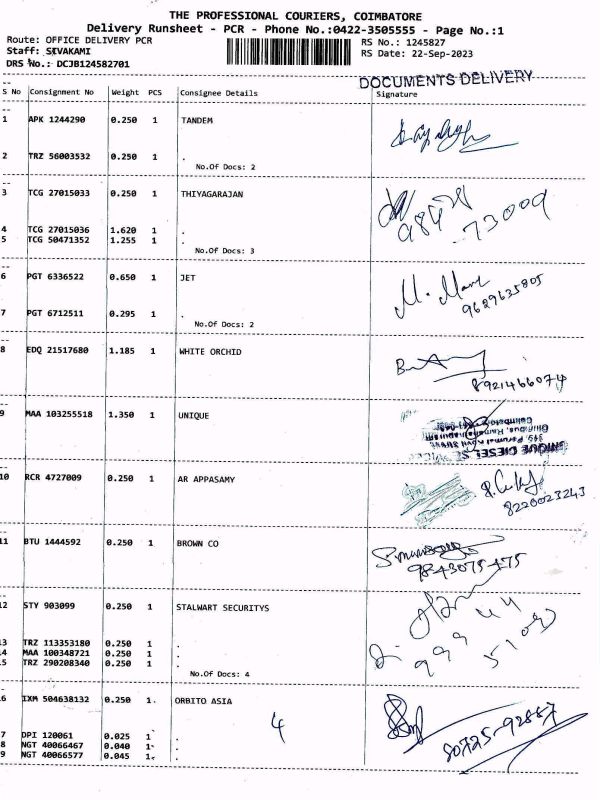 THE PROFESSIONAL COURIERS, COIMBATORE
Delivery Runsheet - PCR - Phone No.:0422-3505555 - Page No.:1
Route: OFFICE DELIVERY PCR RS No.: 1245827
Staff: SIVAKAMI RS Date: 22-Sep-2023
DRS No.: DCJB124582701
DOCUMENTS DELIVERY
S No Consignment No Weight PCS Consignee Details Signature
1 APK 1244290 0.250 1 TANDEM
2 TRZ 56003532 0.250 1 .
No.Of Docs: 2
3 TCG 27015033 0.250 1 THIYAGARAJAN
4 TCG 27015036 1.620 1 .
5 TCG 50471352 1.255 1 .
No.Of Docs: 3
6 PGT 6336522 0.650 1 JET
M. Mani
9629635805
7 PGT 6712511 0.295 1 .
No.Of Docs: 2
8 EDQ 21517680 1.185 1 WHITE ORCHID
8921466074
9 MAA 103255518 1.350 1 UNIQUE
UNIQUE DIESEL
10 RCR 4727009 0.250 1 AR APPASAMY
8220023243
11 BTU 1444592 0.250 1 BROWN CO
9843075475
12 STY 903099 0.250 1 STALWART SECURITYS
3 TRZ 113353180 0.250 1 .
4 MAA 100348721 0.250 1 .
5 TRZ 290208340 0.250 1 .
No.Of Docs: 4
6 IXM 504638132 0.250 1. ORBITO ASIA
4
80725-92887
7 DPI 120061 0.025 1 .
8 NGT 40066467 0.040 1 .
9 NGT 40066577 0.045 1. .